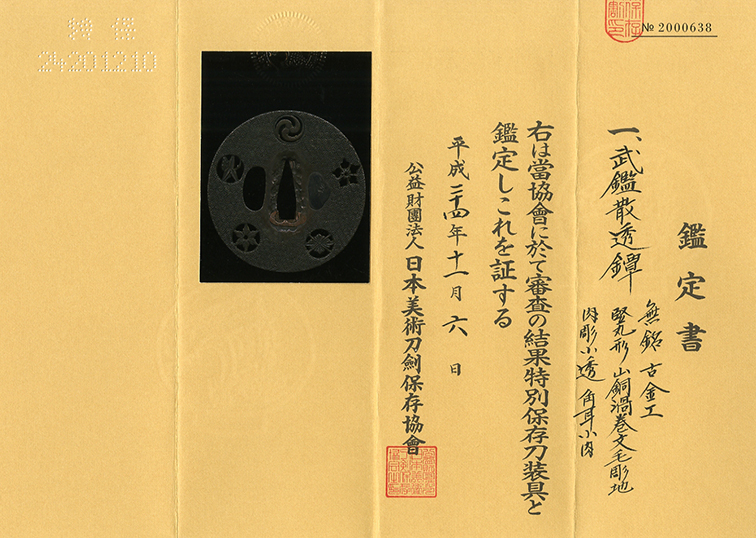 № 2000638
鑑定書
一、武鑑散透鐔
無銘 古金工
竪丸形 山銅渦巻文毛彫地
肉彫小透 角耳小肉
右は當協會に於て審査の結果特別保存刀装具と
鑑定しこれを証する
平成二十四年十一月六日
公益財團法人 日本美術刀劍保存協會
特保
24201210